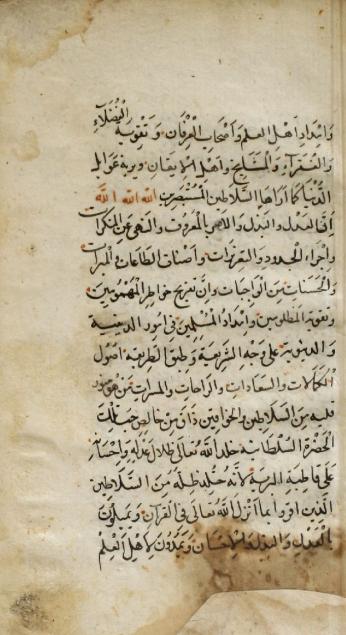 وامداد اهل العلم واصحاب العرفان وتقوية الفضلاء
والفقراء والمشايخ واهل الايقان ويرغوا له
الدنيا كما اراها السلاطين المستبصرين الله الله الله
اقامة العدل والبذل والامر بالمعروف والنهي عن المنكرات
واجراء الحدود والتعزيرات واصناف الطاعات والمبرات
والحسنات من الواجبات وان تفريح خواطر المهمومين
وتقوية المظلومين وامداد المسلمين في امور الدينية
والدنيوية على وجه الشريعة وطبق الطريقة اصول
الكمالات والسعادات والراحات والمسرات فمن هو
قلبه من السلاطين والخواقين ذاق من خالص
الحضرة السلطانية خلد الله تعالى ظلال عدله واحسانه
على قاطبة البرية لانه خلد ظله من السلاطين
الذين اقروا بما انزل الله تعالى في القرآن ويعملون
بالعدل والبذل والاحسان ويمدون لاهل العلم